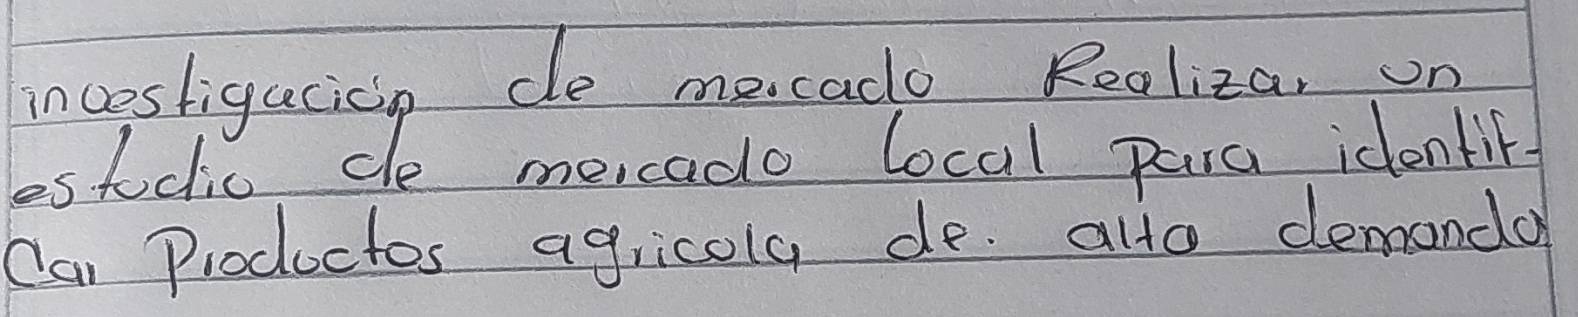 investigación de mercado Realizar un
estudio de mercado local para identif-
Car Productos agricola de. alta demanda